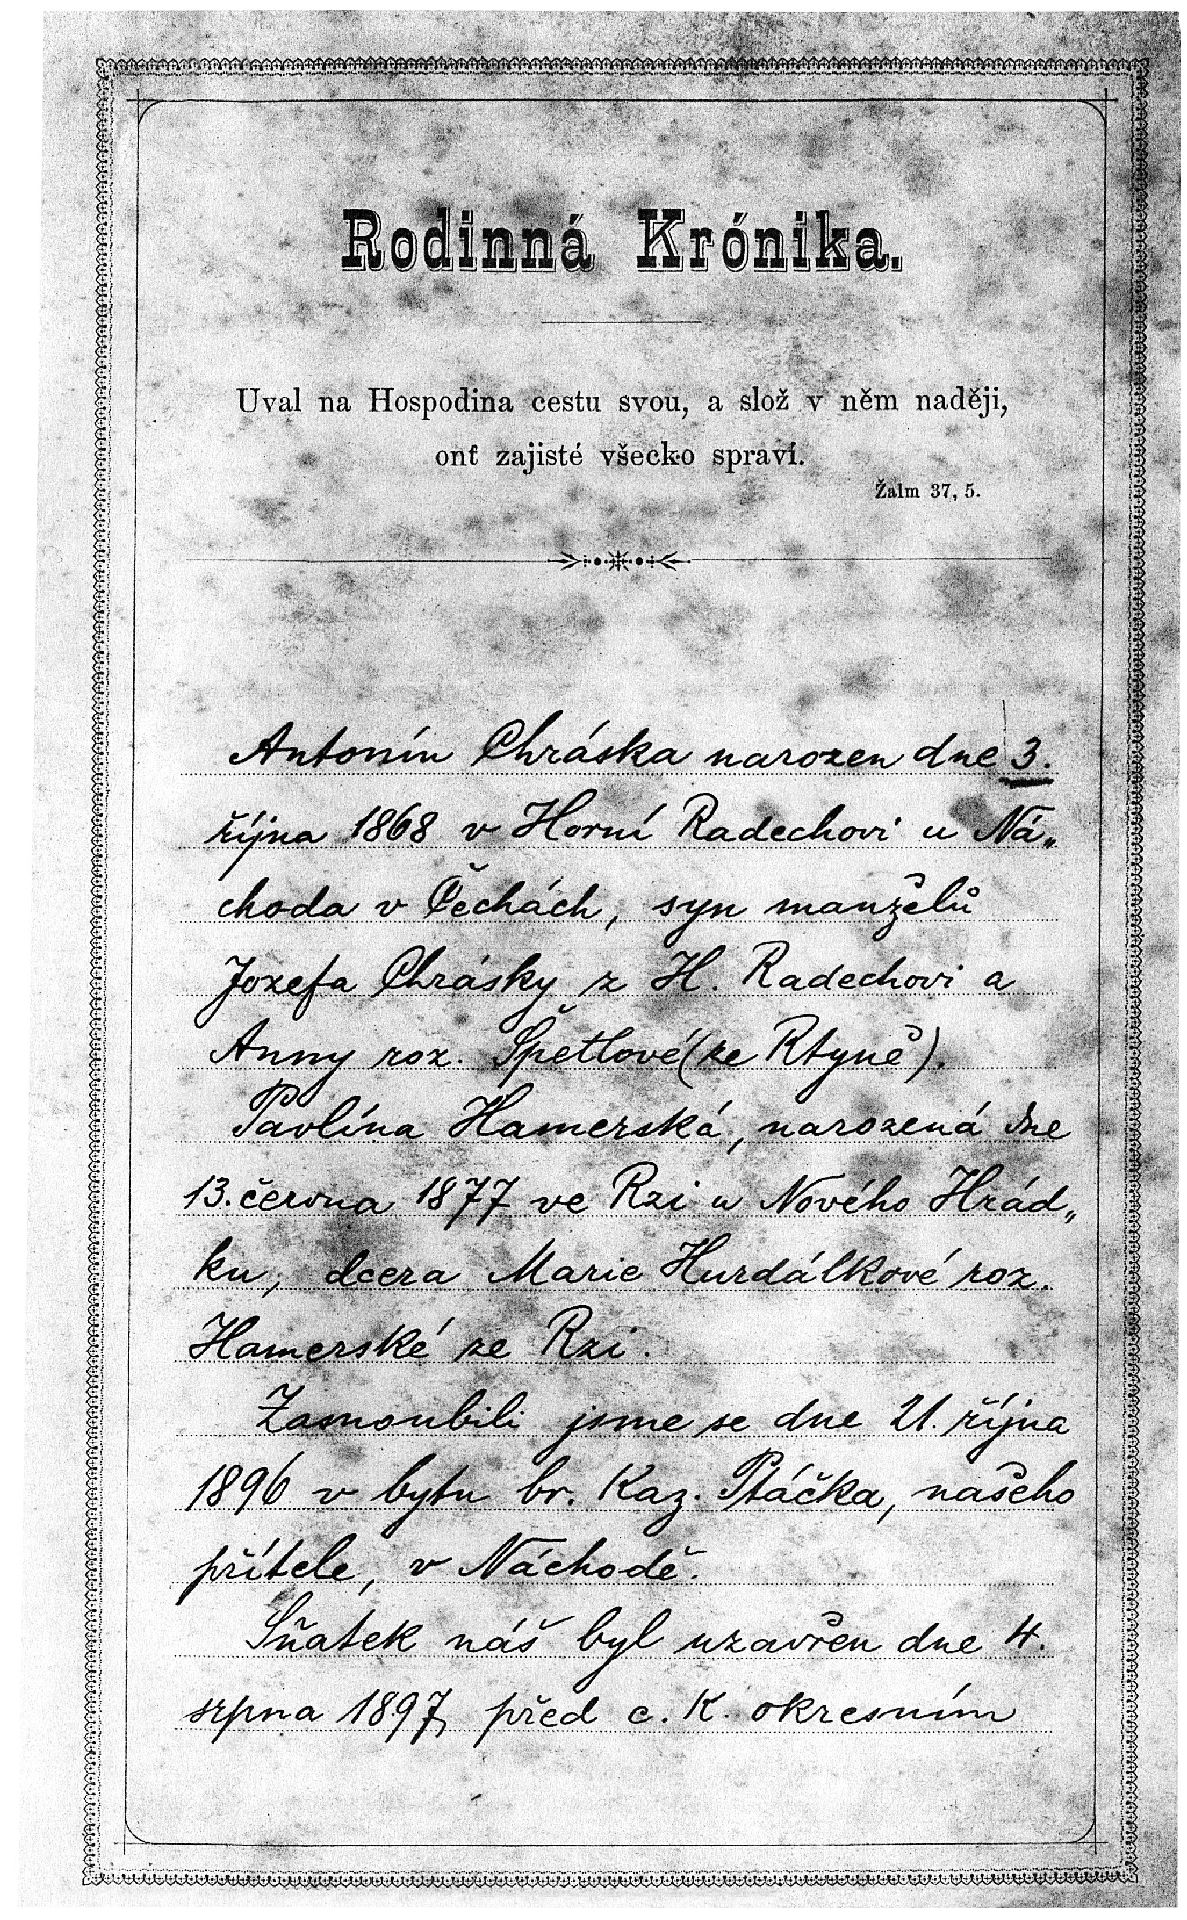 Rodinná Krónika.
Uval na Hospodina cestu svou, a slož v něm naději,
onť zajisté všecko spraví.
Žalm 37, 5.
Antonín Chráska narozen dne 3.
října 1868 v Horní Radechovi u Ná„
choda v Čechách, syn manželů
Jozefa Chrásky z H. Radechovi a
Anny roz. Špetlové (ze Rtyně).
Pavlína Hamerská, narozená dne
13. června 1877 ve Rzi u Nového Hrád„
ku, dcera Marie Hurdálkové roz.
Hamerské ze Rzi.
Zasnoubili jsme se dne 21. října
1896 v bytu br. Kaz. Ptáčka, našeho
přítele, v Náchodě.
Sňatek náš byl uzavřen dne 4.
srpna 1897, před c. K. okresním